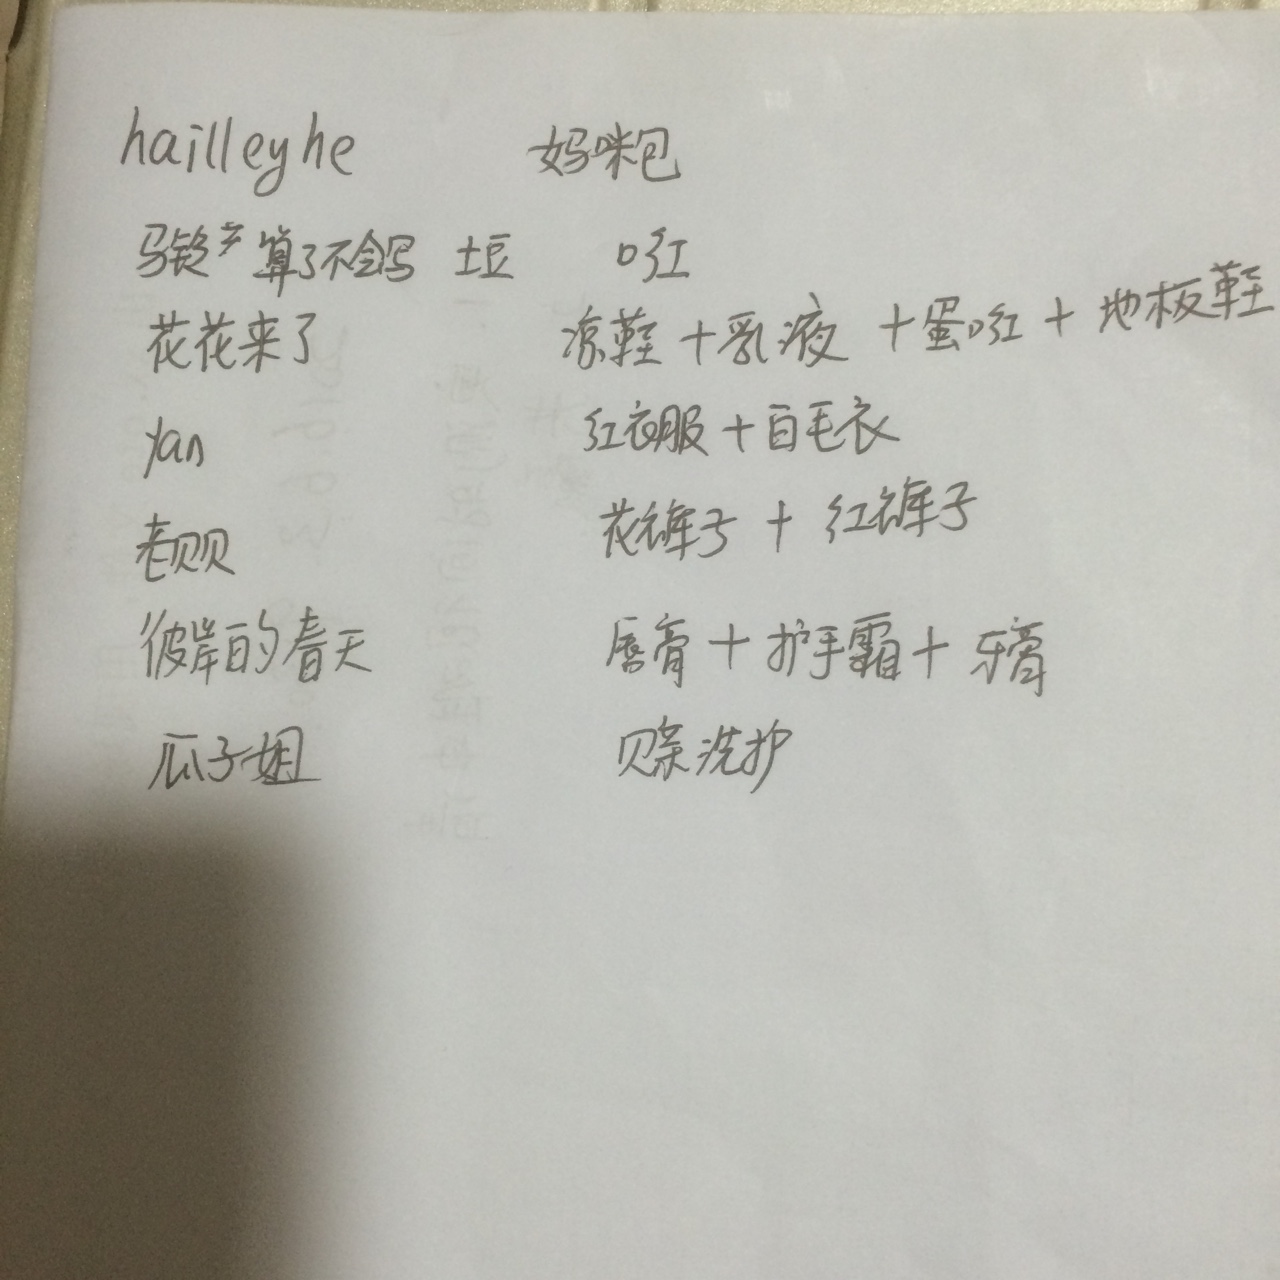 hailleyhe 妈咪包
马铃艹 算了不会写 土豆 口红
花花来了 凉鞋+乳液+蛋口红+地板鞋
yan 红衣服+白毛衣
老贝贝 花裤子+红裤子
彼岸的春天 唇膏+护手霜+牙膏
瓜子姐 贝亲洗护